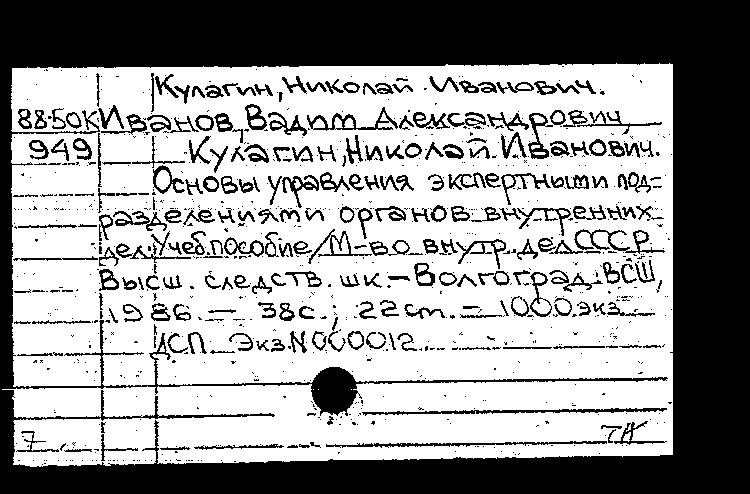 Кулагин, Николай Иванович.
88-50К Иванов, Вадим Александрович,
949 Кулагин, Николай Иванович.
Основы управления экспертными под-
разделениями органов внутренних
дел: Учеб. пособие/М-во внутр. дел СССР
Высш. следств. шк.-Волгоград: ВСШ,
1986. - 38с.; 22см. - 1000экз.
ДСП. Экз.N000012.
7